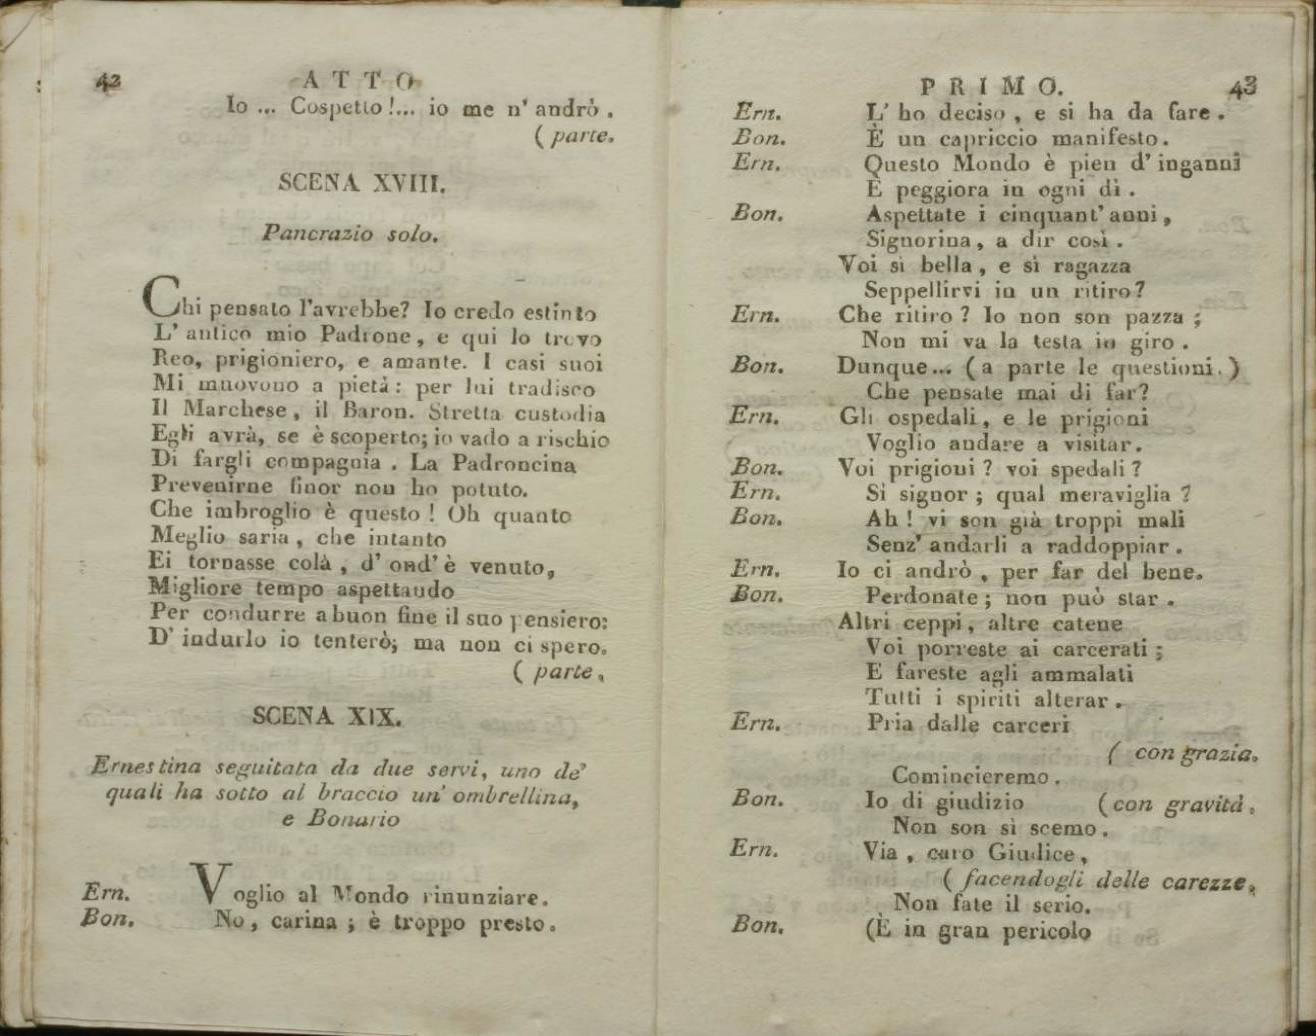 42
ATTO
Io ... Cospetto!... io me n' andrò.
(parte.
SCENA XVIII.
Pancrazio solo.
Chi pensato l'avrebbe? Io credo estinto
L' antico mio Padrone, e qui lo trovo
Reo, prigioniero, e amante. I casi suoi
Mi muovono a pietà: per lui tradisco
Il Marchese, il Baron. Stretta custodia
Egli avrà, se è scoperto; io vado a rischio
Di fargli compagnia. La Padroncina
Prevenirne finor non ho potuto.
Che imbroglio è questo! Oh quanto
Meglio saria, che intanto
Ei tornasse colà, d' ond' è venuto,
Migliore tempo aspettando
Per condurre a buon fine il suo pensiero:
D' indurlo io tenterò; ma non ci spero.
(parte.
SCENA XIX.
Ernestina seguitata da due servi, uno de'
quali ha sotto al braccio un' ombrellina,
e Bonario
Ern. Voglio al Mondo rinunziare.
Bon. No, carina; è troppo presto.
PRIMO.
43
Ern. L' ho deciso, e si ha da fare.
Bon. È un capriccio manifesto.
Ern. Questo Mondo è pien d' inganni
E peggiora in ogni dì.
Bon. Aspettate i cinquant' anni,
Signorina, a dir così.
Voi sì bella, e sì ragazza
Seppellirvi in un ritiro?
Ern. Che ritiro? Io non son pazza;
Non mi va la testa in giro.
Bon. Dunque... (a parte le questioni.)
Che pensate mai di far?
Ern. Gli ospedali, e le prigioni
Voglio andare a visitar.
Bon. Voi prigioni? voi spedali?
Ern. Sì signor; qual meraviglia?
Bon. Ah! vi son già troppi mali
Senz' andarli a raddoppiar.
Ern. Io ci andrò, per far del bene.
Bon. Perdonate; non può star.
Altri ceppi, altre catene
Voi porreste ai carcerati;
E fareste agli ammalati
Tutti i spiriti alterar.
Ern. Pria dalle carceri
(con grazia.
Comincieremo.
Bon. Io di giudizio (con gravità.
Non son sì scemo.
Ern. Via, caro Giudice,
(facendogli delle carezze.
Non fate il serio.
Bon. (È in gran pericolo